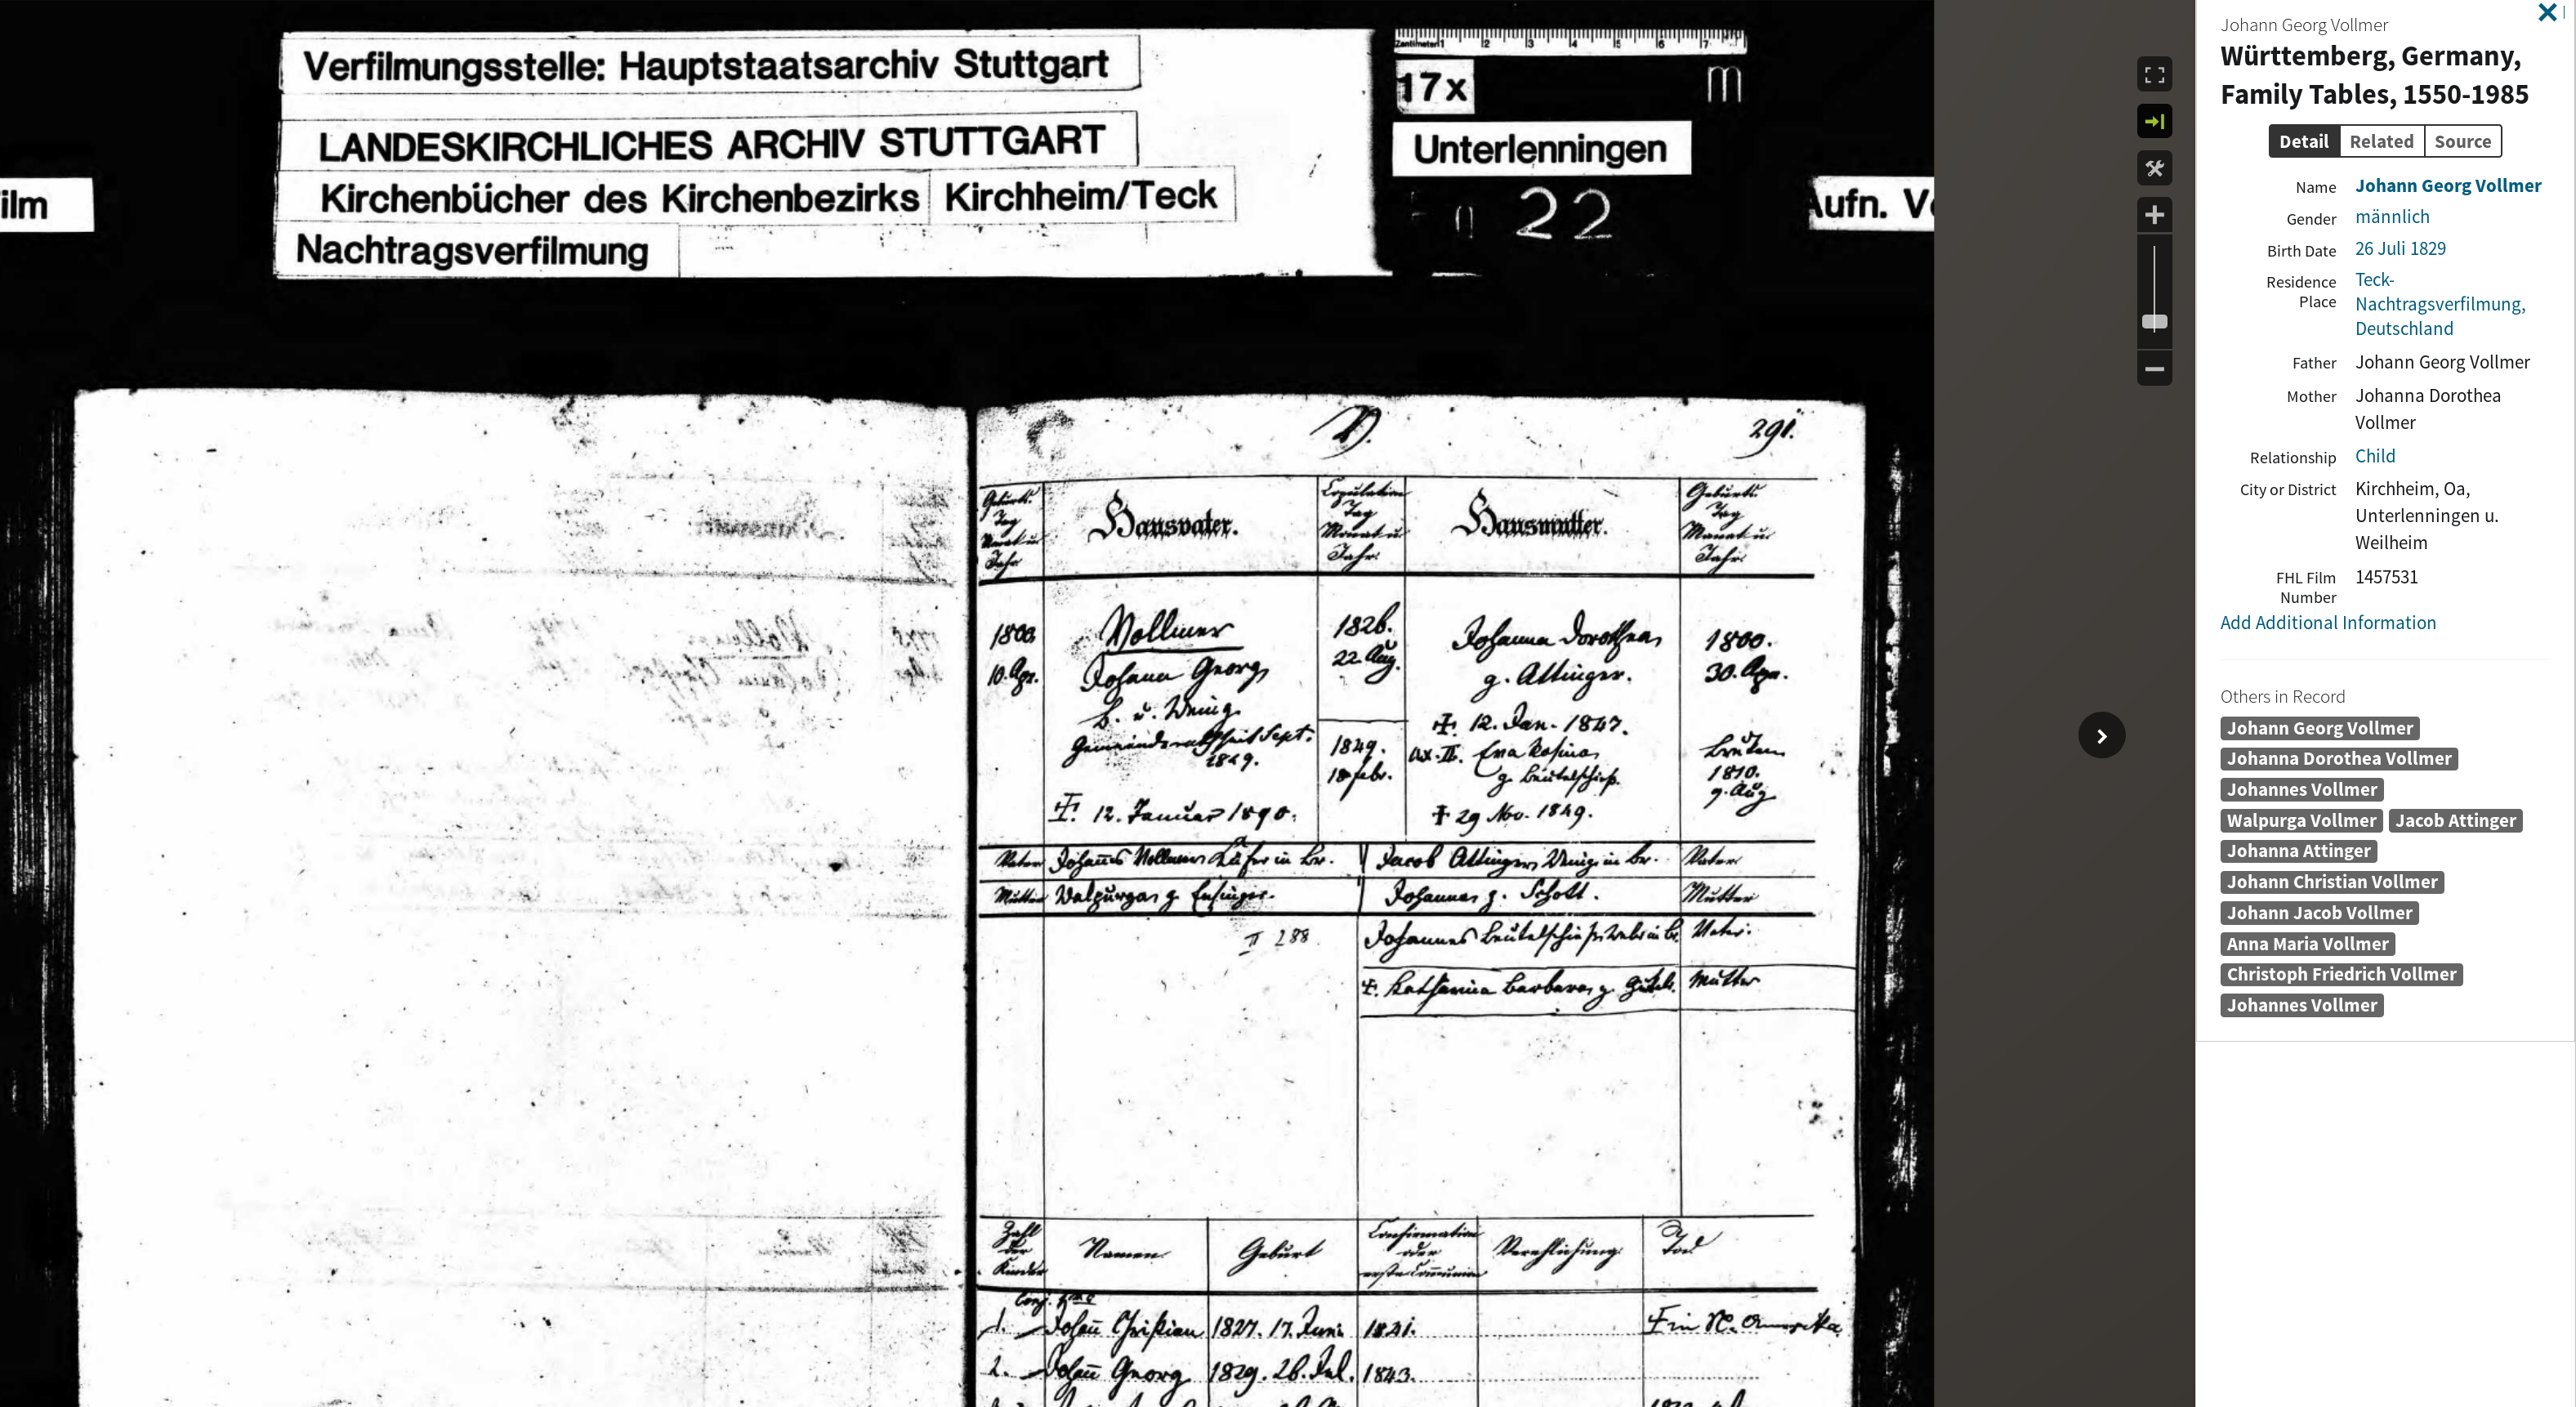 Verfilmungsstelle: Hauptstaatsarchiv Stuttgart
LANDESKIRCHLICHES ARCHIV STUTTGART
Kirchenbücher des Kirchenbezirks Kirchheim/Teck
Nachtragsverfilmung
ilm
Zentimeter 1 2 3 4 5 6 7
17x m
Unterlenningen
22
Aufn. V
291.
Geburts Tag Monat u Jahr
Hausvater.
Copulation Tag Monat u Jahr
Hausmutter.
Geburts Tag Monat u Jahr
1800. 10. Apr.
Vollmer
Johann Georg
b. u. Weing.
Gemeinderath seit Sept. 1849.
✝. 12. Januar 1890.
1826. 22. Aug.
1849. 18 febr.
Johanna Dorothea
g. Attinger.
✝. 12. Jan. 1847.
ux. II. Eva Rosina
g. Beutelschieß.
✝ 29 Nov. 1849.
1800. 30. Apr.
1810. 9. Aug
Vater Johannes Vollmer in Br.
Jacob Attinger, Weing in Br. Vater
Mutter Walpurga g.
Johanna g. Schott. Mutter
II 288
Johannes Beutelschieß Vater.
✝. Katharina Barbara g. Mutter
Zahl der Kinder
Namen
Geburt
Confirmation oder erste Communion
Verehlichung
Tod
Conj. 1mae
1. Johañ Christian 1827. 17. Juni 1841. in N. Amerika
2. Johañ Georg 1829. 26. Jul. 1843.
Johann Georg Vollmer
Württemberg, Germany,
Family Tables, 1550-1985
Detail Related Source
Name Johann Georg Vollmer
Gender männlich
Birth Date 26 Juli 1829
Residence Place Teck-
Nachtragsverfilmung,
Deutschland
Father Johann Georg Vollmer
Mother Johanna Dorothea
Vollmer
Relationship Child
City or District Kirchheim, Oa,
Unterlenningen u.
Weilheim
FHL Film Number 1457531
Add Additional Information
Others in Record
Johann Georg Vollmer
Johanna Dorothea Vollmer
Johannes Vollmer
Walpurga Vollmer Jacob Attinger
Johanna Attinger
Johann Christian Vollmer
Johann Jacob Vollmer
Anna Maria Vollmer
Christoph Friedrich Vollmer
Johannes Vollmer